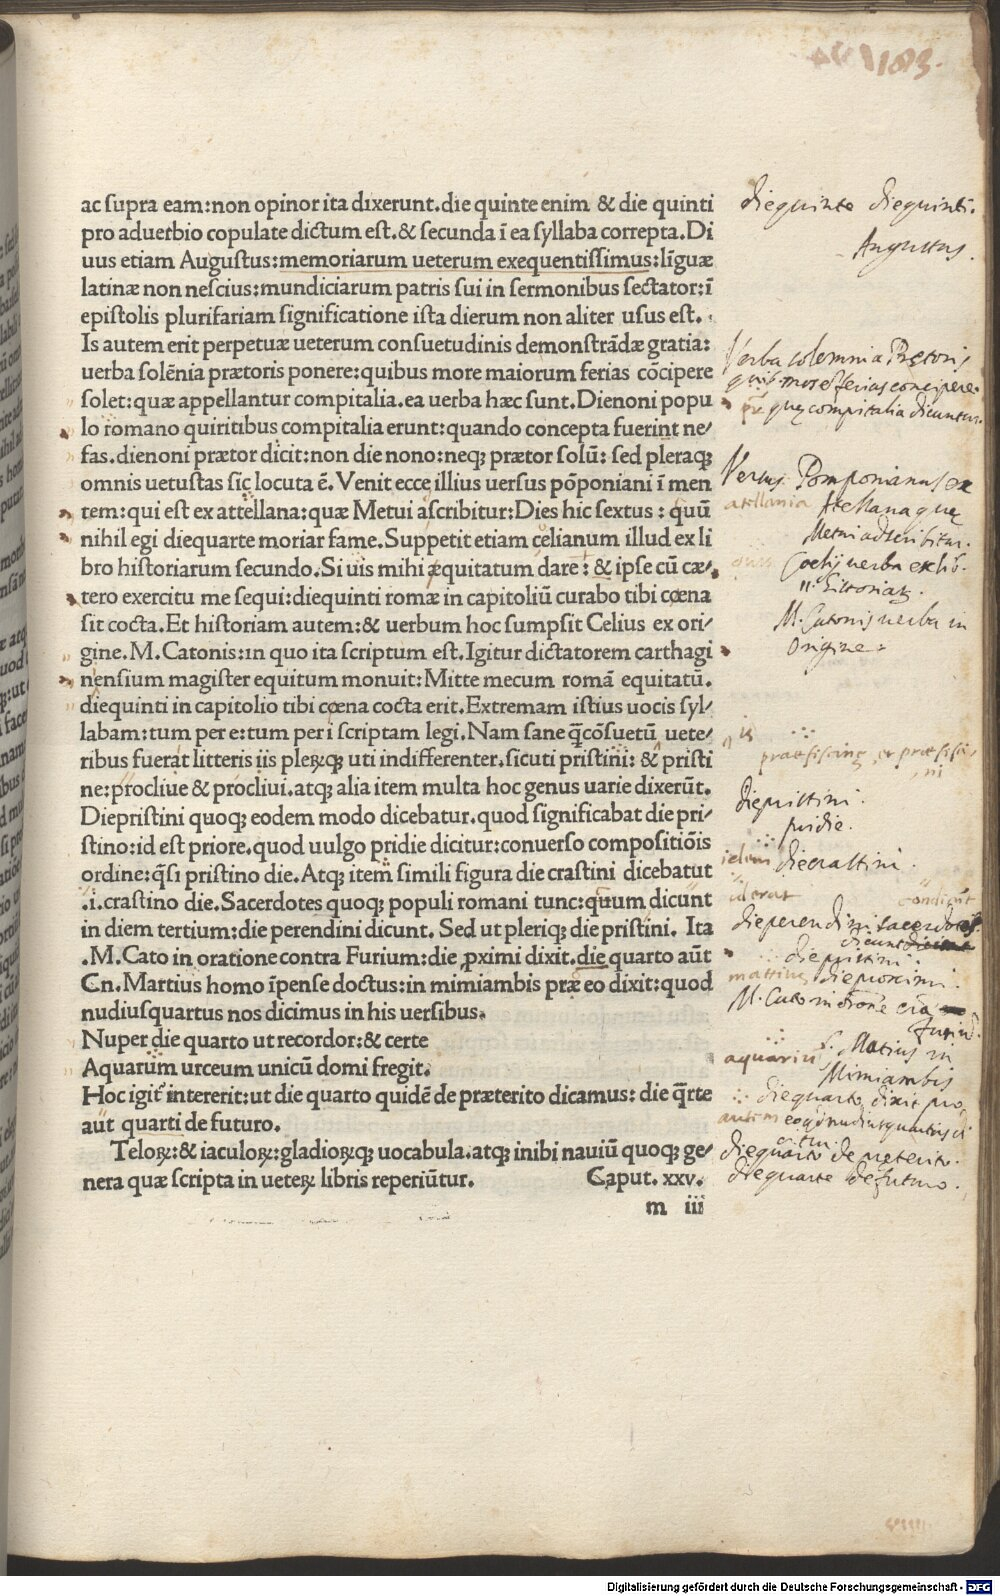 183.
ac ſupra eam:non opinor ita dixerunt.die quinte enim & die quinti
pro aduerbio copulate dictum eſt.& ſecunda ī ea ſyllaba correpta.Di
uus etiam Auguſtus:memoriarum ueterum exequentiſſimus:līguæ
latinæ non neſcius:mundiciarum patris ſui in ſermonibus ſectator:ī
epiſtolis plurifariam ſignificatione iſta dierum non aliter uſus eſt.
Is autem erit perpetuæ ueterum conſuetudinis demonſtrādæ gratia:
uerba ſolēnia prætoris ponere:quibus more maiorum ferias cōcipere
ſolet:quæ appellantur compitalia.ea uerba hæc ſunt.Dienoni popu
lo romano quiritibus compitalia erunt:quando concepta fuerint ne/
fas.dienoni prætor dicit:non die nono:neqꝫ prætor ſolū: ſed pleraqꝫ
omnis uetuſtas ſic locuta ē.Venit ecce illius uerſus pōponiani ī men
tem:qui eſt ex attellana:quæ Metui aſcribitur:Dies hic ſextus : quū
nihil egi diequarte moriar fame.Suppetit etiam celianum illud ex li
bro hiſtoriarum ſecundo.Si uis mihi æquitatum dare : & ipſe cū cæ/
tero exercitu me ſequi:diequinti romæ in capitoliū curabo tibi cœna
ſit cocta.Et hiſtoriam autem:& uerbum hoc ſumpſit Celius ex ori/
gine.M.Catonis:in quo ita ſcriptum eſt.Igitur dictatorem carthagi
nenſium magiſter equitum monuit:Mitte mecum romā equitatū.
diequinti in capitolio tibi cœna cocta erit.Extremam iſtius uocis ſyl/
labam:tum per e:tum per i ſcriptam legi.Nam ſane q̄cōſuetū uete/
ribus fuerat litteris iis pleꝝqꝫ uti indifferenter.ſicuti priſtini: & priſti
ne:procliue & procliui.atqꝫ alia item multa hoc genus uarie dixerūt.
Diepriſtini quoqꝫ eodem modo dicebatur.quod ſignificabat die pri/
ſtino:id eſt priore.quod uulgo pridie dicitur:conuerſo compoſitiōis
ordine:q̄ſi priſtino die.Atqꝫ item ſimili figura die craſtini dicebatut
.i.craſtino die.Sacerdotes quoqꝫ populi romani tunc:quum dicunt
in diem tertium:die perendini dicunt. Sed ut pleriqꝫ die priſtini. Ita
.M.Cato in oratione contra Furium:die ꝓximi dixit.die quarto aūt
Cn.Martius homo īpenſe doctus:in mimiambis præ eo dixit:quod
nudiuſquartus nos dicimus in his uerſibus.
Nuper die quarto ut recordor:& certe
Aquarum urceum unicū domi fregit.
Hoc igit᷑ intererit:ut die quarto quidē de præterito dicamus: die q̄rte
aut quarti de futuro.
Teloꝝ:& iaculoꝝ:gladioꝝqꝫ uocabula.atqꝫ inibi nauiū quoqꝫ ge/
nera quæ ſcripta in ueteꝝ libris reperiūtur. Caput. xxv.
m iii
diequinte diequinti.
Auguſtus.
Verba solemnia Prætoris
quib. more eſt ferias concipere.
quę compitalia dicuntur.
Verſus Pomponianus ex
atellania
Atellana quę
Metui adſcribitur.
Coelij uerba ex lib.
ii. hiſtoriaꝝ.
M. Catonis uerba in
Origine.
is
diepriſtini.
pridie.
idem
diecraſtini.
dieperendini ſacerdotes
dicunt
diepriſtini.
mattius
dieproximi.
M. Cato in
aquariū
Matius in
Mimiambis
diequarto dixit pro
autem
eo qd nudiusquartus
diequarto de preterito.
diequarte de futuro.
Digitalisierung gefördert durch die Deutsche Forschungsgemeinschaft - DFG